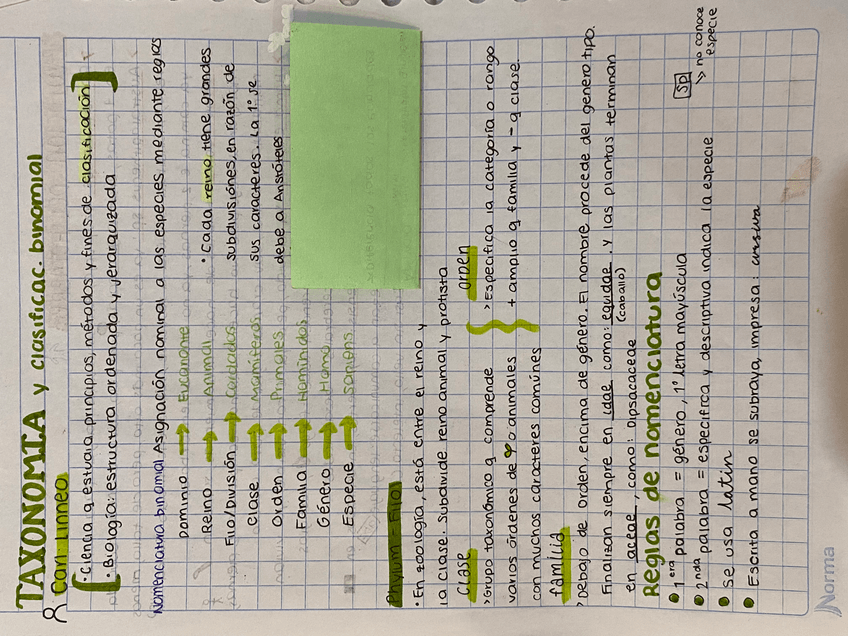 TAXONOMIA y clasificac. binomial
Carl Linneo
• Ciencia q estudia principios, métodos y fines de clasificación
• Biología: estructura ordenada y jerarquizada
Nomenclatura binomial Asignación nominal a las especies mediante reglas
Dominio → Eucarionte
Reino → Animal
Filo/División → Cordados
Clase → Mamíferos
Orden → Primates
Familia → Homínidos
Género → Homo
Especie → Sapiens
• Cada reino tiene grandes
subdivisiónes, en razón de
sus caracteres. La 1º se
debe a Aristóteles
Phylum - Filo
• En zoología, está entre el reino y
la clase. Subdivide reino animal y protista
Clase
> Grupo taxonómico q comprende
varios órdenes de o animales
con muchos caracteres comúnes
orden
> Especifica la categoría o rango
+ amplio q familia y - q clase
familia
> Debajo de orden, encima de género. El nombre procede del genero tipo.
Finalizan siempre en idae como: equidae, y las plantas terminan
(caballo)
en aceae, como: Dipsacaceae
Reglas de nomenclatura
• 1era palabra = género, 1º letra mayúscula
• 2nda palabra = específica y descriptiva indica la especie
SP
>> no conoce
especie
• Se usa latín
• Escrita a mano se subraya, impresa: cursiva
Norma